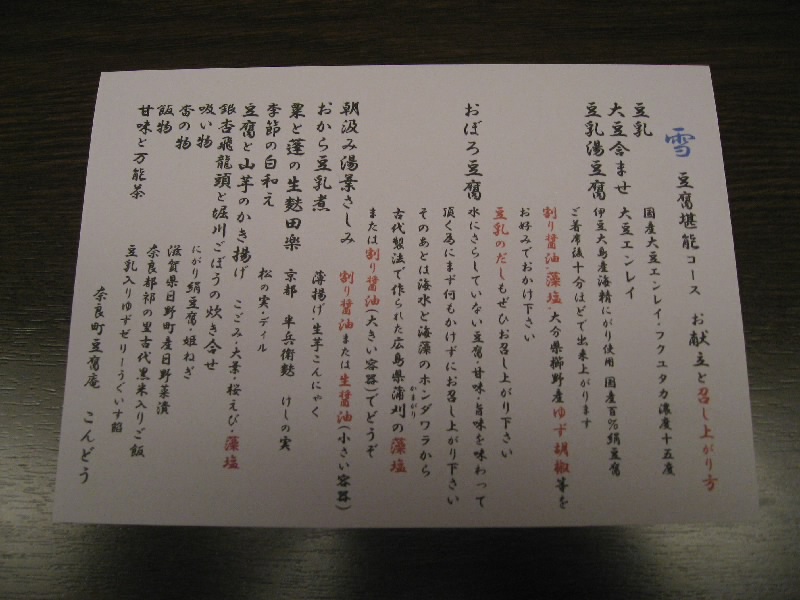 雪 豆腐堪能コース お献立と召し上がり方
豆乳 国産大豆エンレイ・フクユタカ濃度十五度
大豆含ませ 大豆エンレイ
豆乳湯豆腐 伊豆大島産海精にがり使用 国産百%絹豆腐
ご着席後十分ほどで出来上がります
割り醤油・藻塩・大分県櫛野産ゆず胡椒等を
お好みでおかけ下さい
豆乳のだしもぜひお召し上がり下さい
おぼろ豆腐 水にさらしていない豆腐・甘味・旨味を味わって
頂く為にまず何もかけずにお召し上がり下さい
そのあとは海水と海藻のホンダワラから
古代製法で作られた広島県蒲刈の藻塩
かまがり
または割り醤油(大きい容器)でどうぞ
朝汲み湯葉さしみ 割り醤油または生醤油(小さい容器)
おから豆乳煮 薄揚げ・生芋こんにゃく
粟と蓬の生麩田楽 京都 半兵衛麩 けしの実
季節の白和え 松の実・ディル
豆腐と山芋のかき揚げ こごみ・大葉・桜えび・藻塩
銀杏飛龍頭と堀川ごぼうの炊き合せ
吸い物 にがり絹豆腐・姫ねぎ
香の物 滋賀県日野町産日野菜漬
飯物 奈良都祁の里古代黒米入りご飯
甘味と万能茶 豆乳入りゆずゼリー・うぐいす餡
奈良町豆腐庵 こんどう